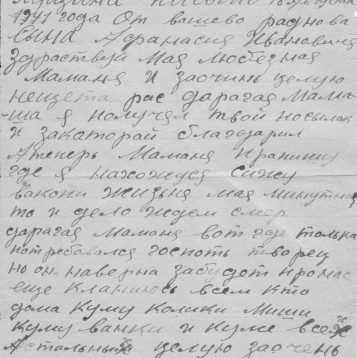 1941 года От вашево раднова
сына Афанасия Ивановича
Здраствуй Мая любезная
Маманя и заочни целую
нещета рас дарагая Мама-
ша я получил твой посылак
и закаторай благадарил
Атеперь Маманя я пропишу
где я нахожуся сижу
вакопи жизьня мая минутная
то и дело ждем смер
дарагая Маманя вот где толька
потребовался госпоть творец
но он наверна забудет про нас
еще кланиюсь всем кто
дома куму Колики Миши
куму ванки и куме всех
Астальных целую заочень